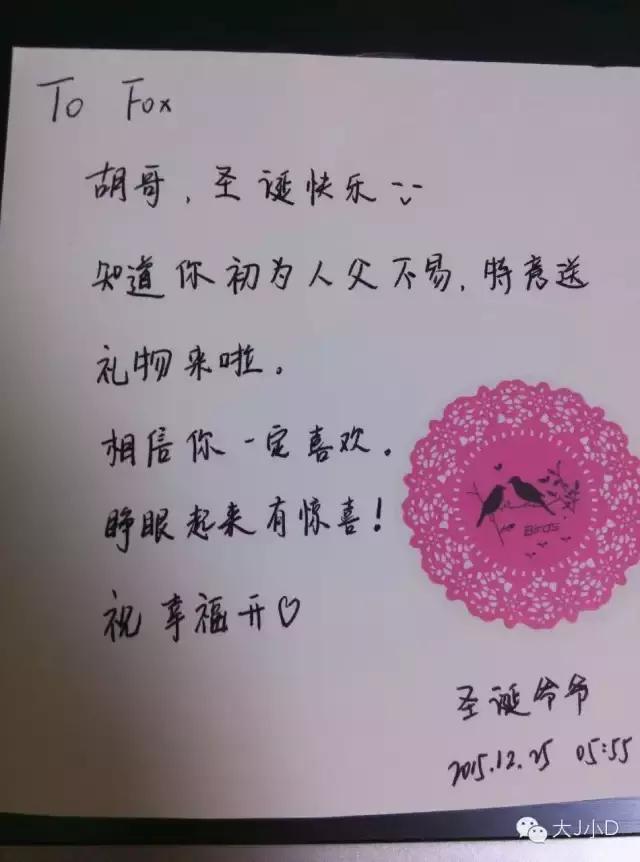 To Fox
胡哥，圣诞快乐
知道你初为人父不易，特意送
礼物来啦。
相信你一定喜欢。
睁眼起来有惊喜！
祝幸福开♡
Birds
圣诞爷爷
2015.12.25 05:55
大J小D